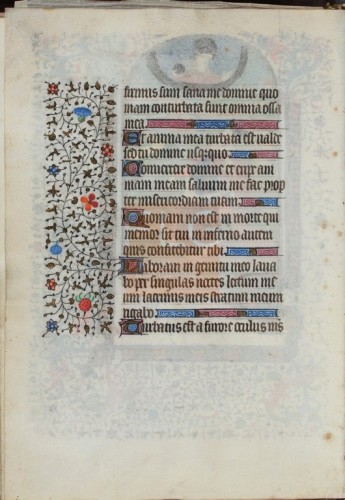 firmus sum sana me domine quo
niam conturbata sunt omnia ossa
mea
Et anima mea turbata est valde
sed tu domine usquequo
Convertere domine et eripe ani
mam meam salvum me fac prop
ter misericordiam tuam
Quoniam non est in morte qui
memor sit tui in inferno autem
quis confitebitur tibi
Laboravi in gemitu meo lava
bo per singulas noctes lectum me
um lacrimis meis stratum meum
rigabo
Turbatus est a furore oculus me